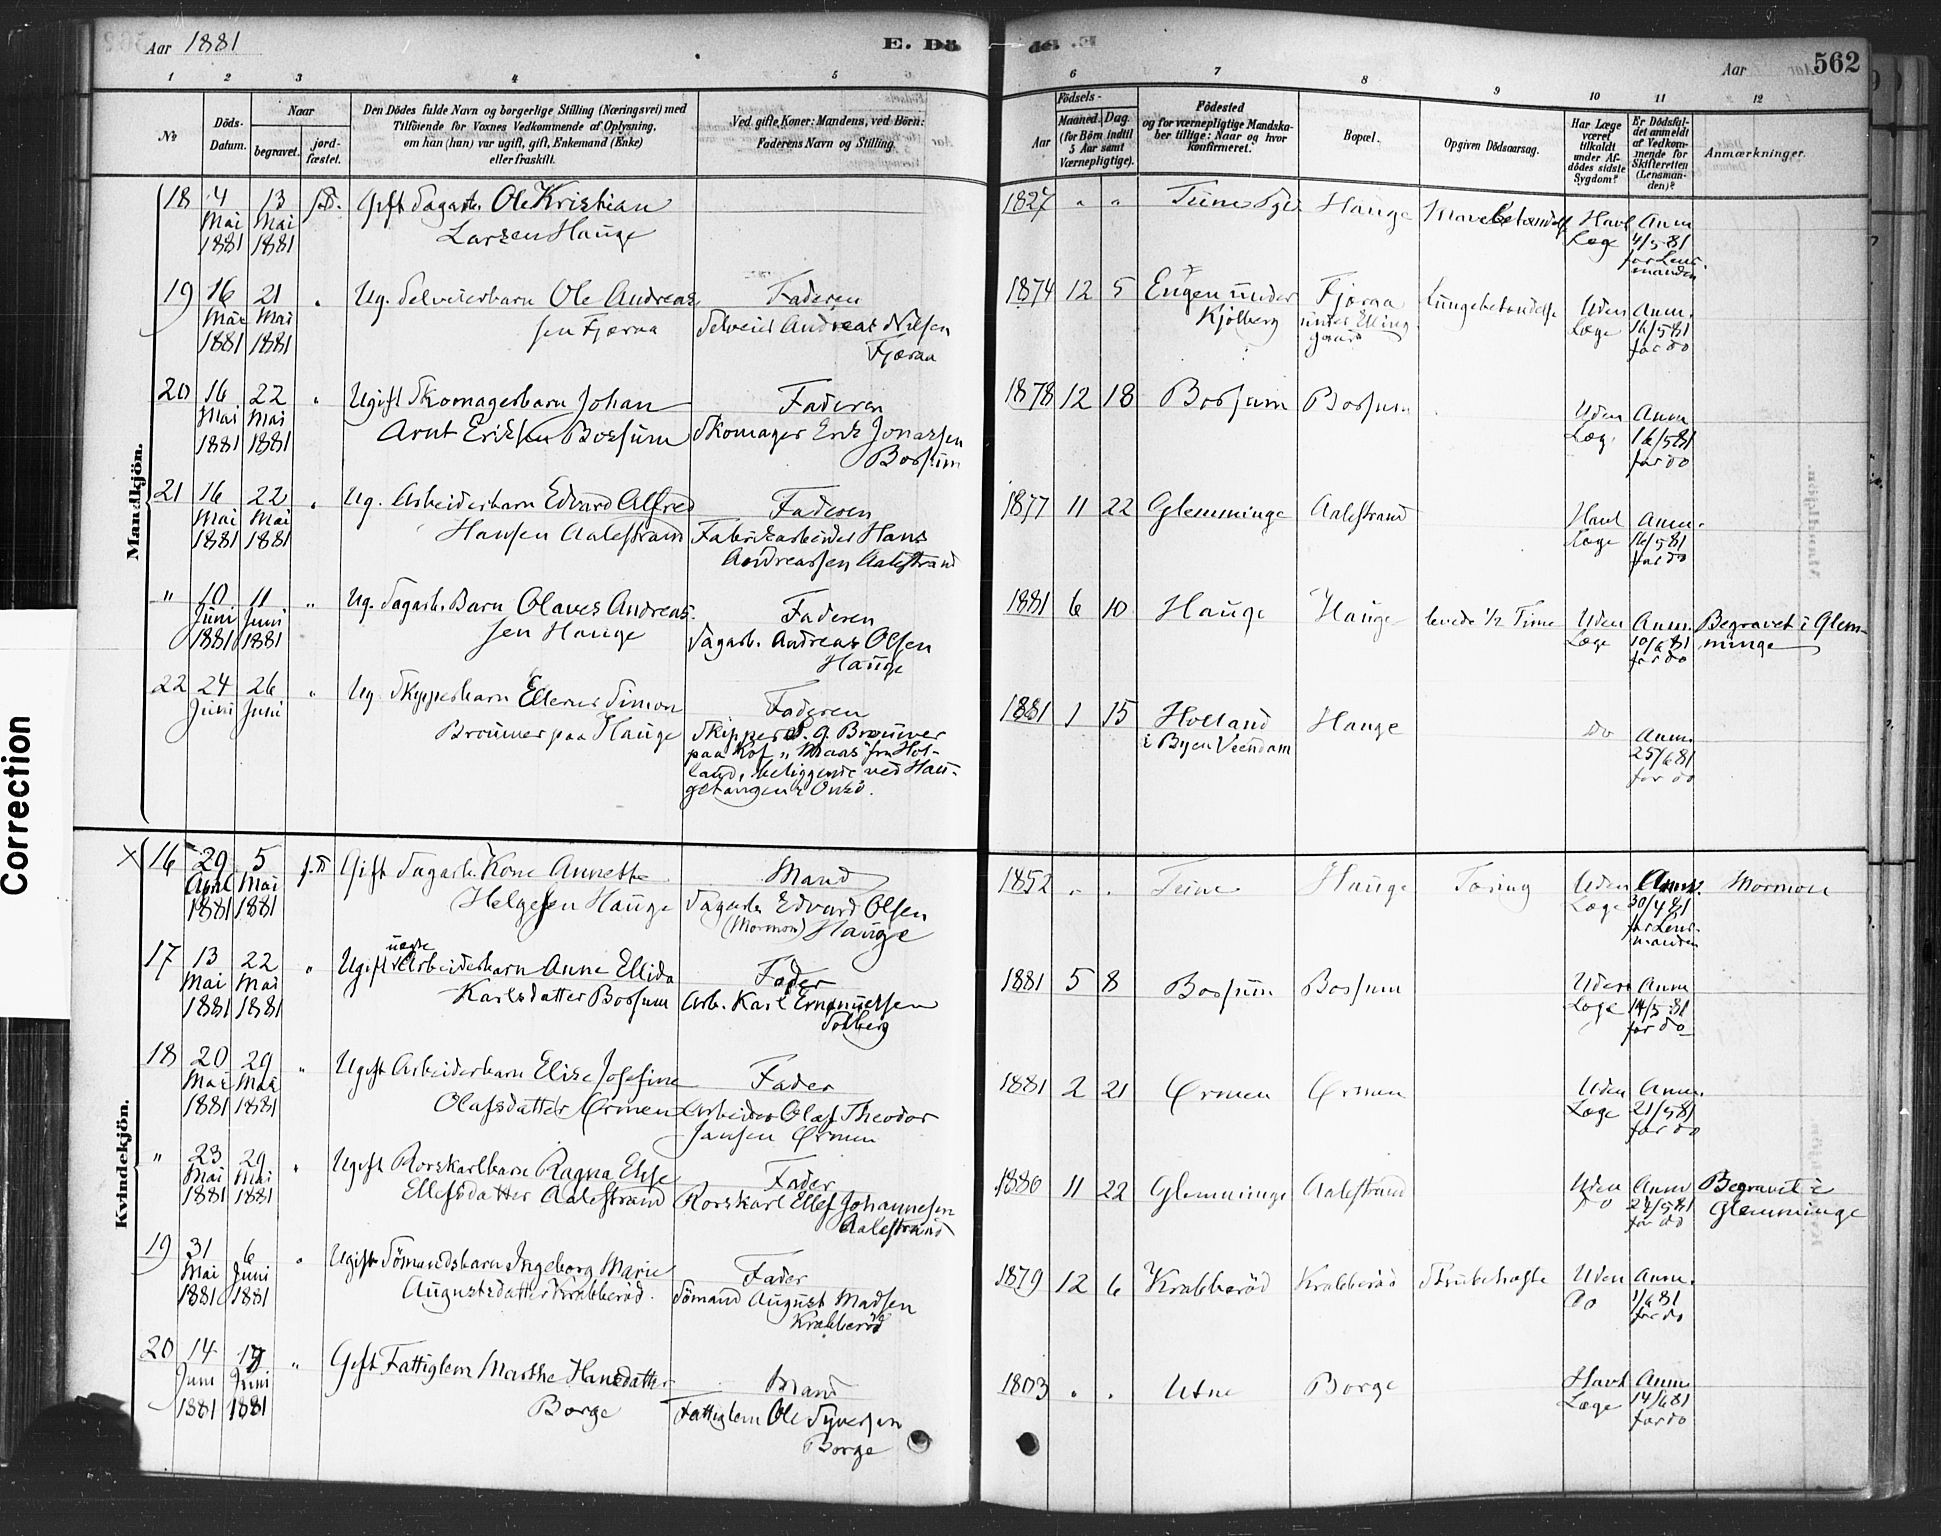 Aar 1881
E. Dö
de. E.
Aar
562
1 2 3 4 5 6 7 8 9 10 11 12
No
Döds-
Datum.
Naar
begravet.
jord-
fæstet.
Den Dödes fulde Navn og borgerlige Stilling (Næringsvei) med
Tilföiende for Voxnes Vedkommende af Oplysning,
om han (hun) var ugift, gift, Enkemand (Enke)
eller fraskilt.
Ved gifte Koner: Mandens, ved Börn:
Faderens Navn og Stilling.
Födsels-
Aar
Maaned.
Dag.
(for Börn indtil
5 Aar samt
Værnepligtige).
Födested
og for værnepligtige Mandska-
ber tillige: Naar og hvor
konfirmeret.
Bopæl.
Opgiven Dödsaarsag.
Har Læge
været
tilkaldt
under Af-
dödes sidste
Sygdom?
Er Dödsfal-
det anmeldt
af Vedkom-
mende for
Skifteretten
(Lensman-
den)?
Anmærkninger.
Mandkjön.
18 4 Mai 1881 13 Mai 1881 f.D. Gift Sagarb. Ole Kristian
Larsen Hauge
1827 " " Tune Hauge
Havt Læge
Anm 4/5 81
for Lens-
manden
19 16 Mai 1881 21 Mai 1881 " Ug. Selveierbarn Ole Andreas-
sen Fjæraa
Faderen
Selveier Andreas Nilsen
Fjæraa
1874 12 5 Engen under
Kjölberg
Fjæraa
under Elling-
gaard
Lungebetændelse
Uden Læge
Anm. 16/5 81
for do
20 16 Mai 1881 22 Mai 1881 " Ugift Skomagerbarn Johan
Arnt Eriksen Bossum
Faderen
Skomager Erik Jonassen
Bossum
1878 12 18 Bossum Bossum
Uden Læg.
Anm 16/5 81
for do
21 16 Mai 1881 22 Mai 1881 " Ug. Arbeiderbarn Edvard Alfred
Hansen Aalestrand
Faderen
Fabrikarbeider Hans
Andreassen Aalestrand
1877 11 22 Glemminge Aalestrand
Havt Læge
Anm. 16/5 81
for do
" 10 Juni 1881 11 Juni 1881 " Ug. Sagarb. Barn Olaves Andreas-
sen Hauge
Faderen
Sagarb. Andreas Olsen
Hauge
1881 6 10 Hauge Hauge levede 1/2 Time
Uden Læge
Anm. 10/6 81
for do
Begravet i Glem-
minge
22 24 Juni 26 Juni " Ug. Skipperbarn Ellerus Simon
Brouwer paa Hauge
Faderen
Skipper S. G. Brouwer
paa Kof "Maas" fra Hol-
land, beliggende ved Hau-
getangen i Onsö.
1881 1 15 Holland
i Byen Veendam
Hauge
do
Anm. 25/6 81
for do
Kvindekjön.
X 16 29 April 1881 5 Mai 1881 f.D Gift Sagarb. Kone Annette
Helgesen Hauge
Mand
Sagarb. Edvard Olsen
(Mormon) Hauge
1852 " " Tune Hauge Tæring
Uden Læge
Anm. 30/4 81
for Lens-
manden
Mormon
17 13 Mai 1881 22 Mai 1881 " Ugift uægte Arbeiderbarn Anne Ellida
Karlsdatter Bossum
Fader
Arb. Karl Emanuelsen
Solberg
1881 5 8 Bossum Bossum
Uden Læge
Anm 14/5 81
for do
18 20 Mai 1881 29 Mai 1881 " Ugift Arbeiderbarn Elise Josefine
Olafsdatter Ørmen
Fader
Arbeider Olaf Theodor
Jansen Ørmen
1881 2 21 Ørmen Ørmen
Uden Læge
Anm. 21/5 81
for do
" 23 Mai 1881 29 Mai 1881 " Ugift Rorskarlbarn Ragna Elise
Ellefsdatter Aalestrand
Fader
Rorskarl Ellef Johannesen
Aalestrand
1880 11 22 Glemminge Aalestrand
Uden do
Anm 24/5 81
for do
Begravet i
Glemminge
19 31 Mai 1881 6 Juni 1881 " Ugift Sömandsbarn Ingeborg Marie
Augustsdatter Krabberöd.
Fader
Sömand August Madsen
Krabberöd
1879 12 6 Krabberöd Krabberöd Strubehoste
Uden do
Anm. 1/6 81
for do
20 14 Juni 1881 Juni 1881 " Gift Fattiglem Marthe Hansdatter
Borge
Mand
Fattiglem Ole Syversen
Borge
1803 " " Utne Borge
Havt Læge
Anm 14/6 81
for do
Correction